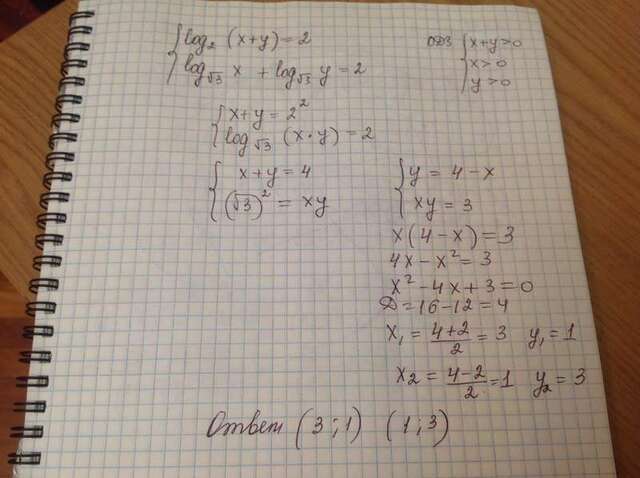 { log₂ (x+y) = 2
log_√3 x + log_√3 y = 2
ОДЗ { x+y>0
x>0
y>0
{ x+y = 2²
log_√3 (x·y) = 2
{ x+y = 4
(√3)² = xy
{ y = 4-x
xy = 3
x(4-x) = 3
4x-x² = 3
x²-4x+3=0
D=16-12=4
x₁ = (4+2)/2 = 3 y₁=1
x₂ = (4-2)/2 = 1 y₂=3
Ответ (3;1) (1;3)